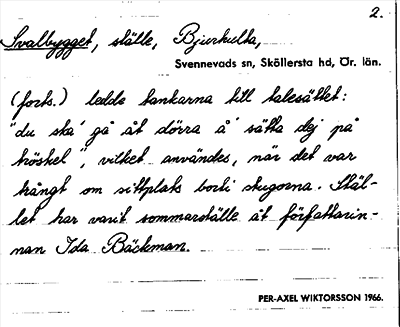 2.
Svalbygget, ställe, Bjurhulta,
Svennevads sn, Sköllersta hd, Ör. län.
(forts.) ledde tankarna till talesättet:
"du ska' gå åt dörra å' sätta dej på
tröskel", vilket användes, när det var
trångt om sittplats borti stugorna. Stäl-
let har varit sommarställe åt författarin-
nan Ida Bäckman.
PER-AXEL WIKTORSSON 1966.